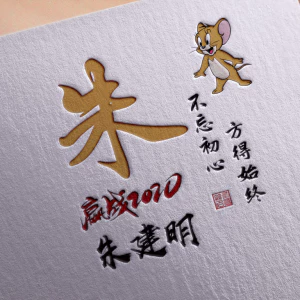 朱
赢战2020
朱建明
不忘初心
方得始终